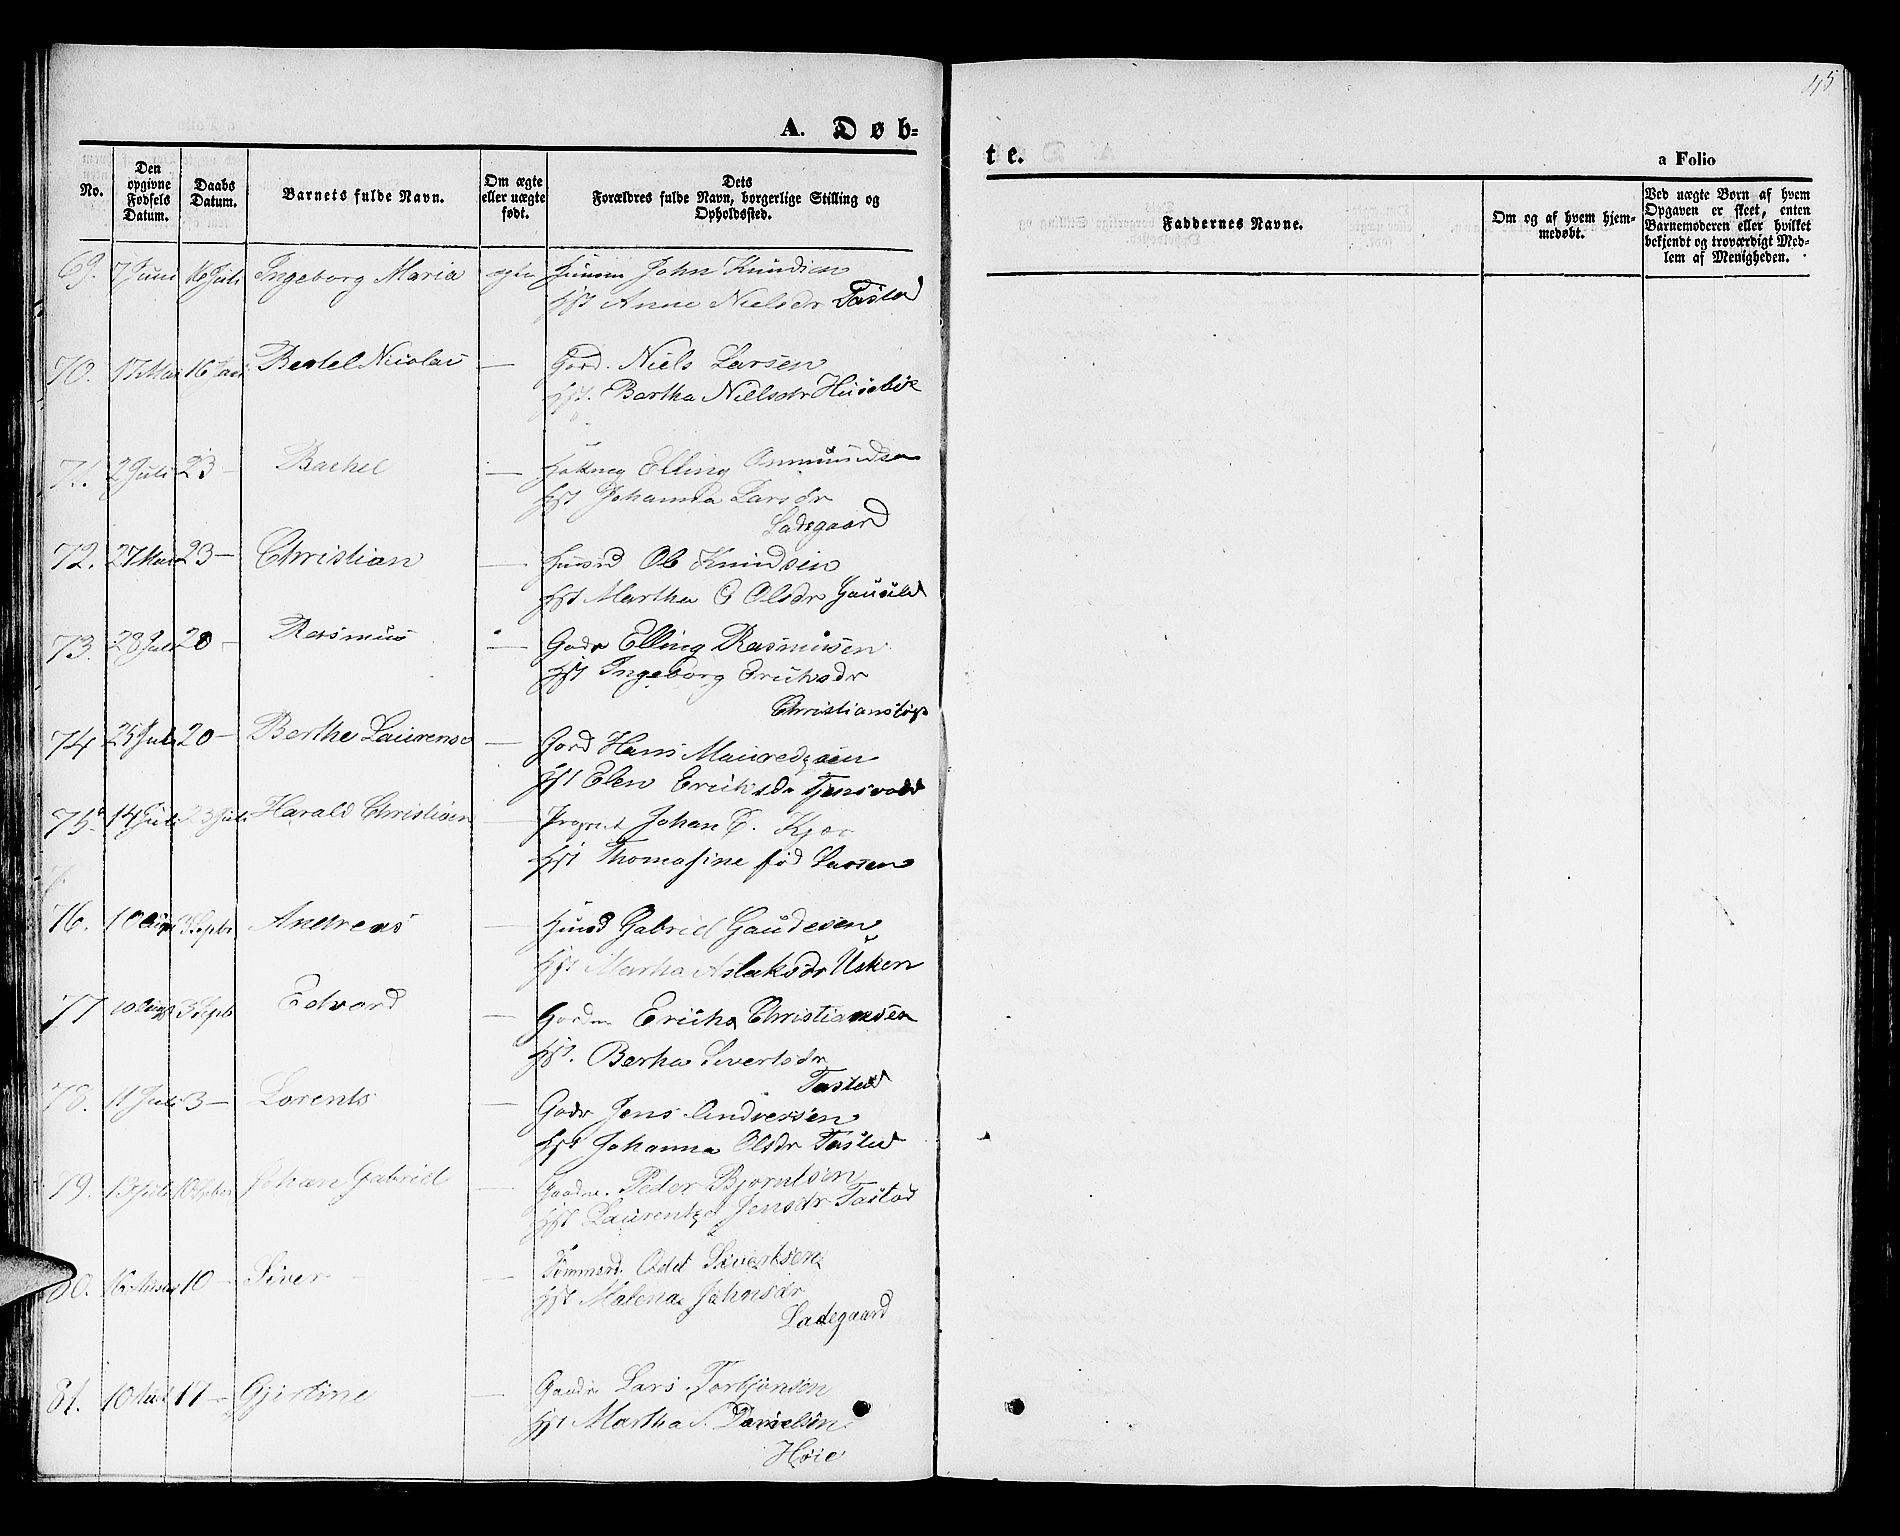 A. Døb=
No.
Den opgivne Fødsels Datum.
Daabs Datum.
Barnets fulde Navn.
Om ægte eller uægte født.
Dets Forældres fulde Navn, borgerlige Stilling og Opholdssted.
69. 7 Juni 16 Juli Ingeborg Maria ægte John Knudsen
Hst Anne Nielsdr Tasta
70. 17 Mai 16 Juli Bertel Nicolai — Gord. Niels Larsen
Hst. Bertha Nielsdr Husebøe
71. 2 Juli 23 — Rachel — Elling Ommundsen
Hst Johanna Larsdr
Ladegaard
72. 27 Mai 23 — Christian — Husd Ole Knudsen
Hst Martha O Olsdr Gausel
73. 23 Juli 20 — Rasmus — Gadr Elling Rasmussen
Hst Ingeborg Eriksdr
74 25 Juli 20 — Berthe Laurense — Gord Hans Mauredsen
Hst Elen Eriksdr Tjensvold
75. 14 Juli 23 Juli Harald Christian — Johan C. Kjær
Hst Thomasine fød Larsen
7.
76. 10 Aug Septbr Andreas — Husd Gabriel Gaudesen
Hst Martha Aslaksdr Usken
77 10 Aug 3 Septbr Edvard — Erich Christiansen
Hst. Bertha Sivertsdr
Tasta
78. 11 Juli 3 — Lorents — Gadr Jens Andressen
Hst Johanna Olsdr Tasta
79. 13 Juli 10 Septbr Johan Gabriel — Peder Bjørnsen
Hst Laurentze Jensdr Tasta
80. 16 10 — Siver — Tømmerd. Odet Sivertsen
Hst Malena Johnsdr
Ladegaard
81. 10 17 — Gjertine — Gaadr. Lars Torbjønsen
Hst Martha S. Danielsen
Høie
45
te.
a Folio
Faddernes Navne.
Om og af hvem hjem=
medøbt.
Ved uægte Børn af hvem
Opgaven er skeet, enten
Barnemoderen eller hvilket
bekjendt og troværdigt Med=
lem af Menigheden.